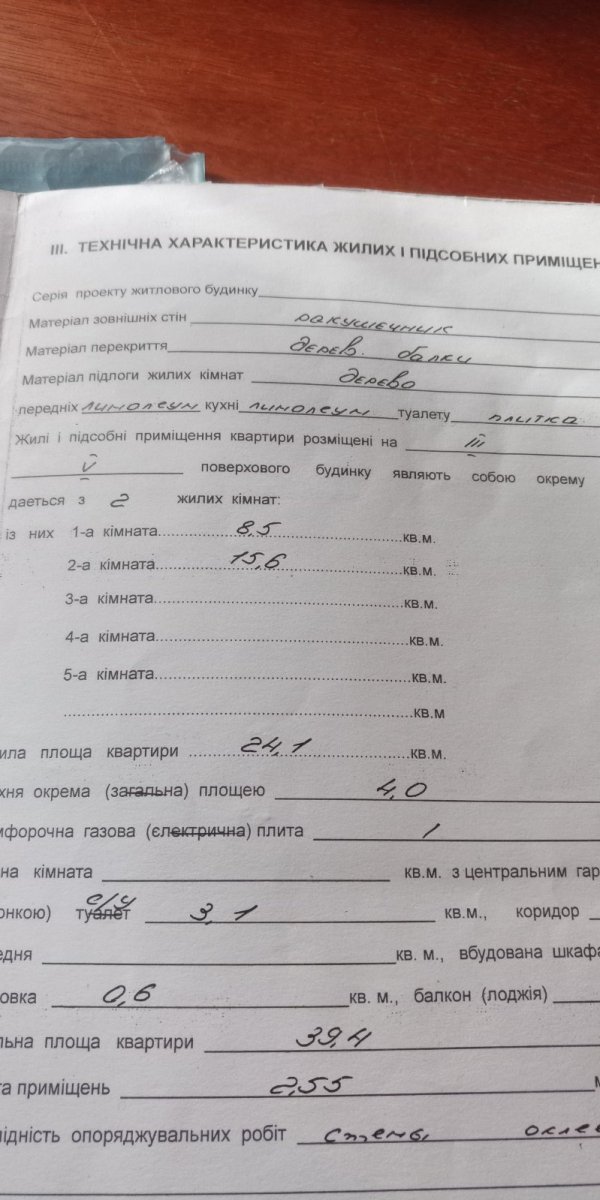 III. ТЕХНІЧНА ХАРАКТЕРИСТИКА ЖИЛИХ І ПІДСОБНИХ ПРИМІЩЕН
Серія проекту житлового будинку
Матеріал зовнішніх стін ракушечник
Матеріал перекриття дерев. балки
Матеріал підлоги жилих кімнат дерево
передніх линолеум кухні линолеум туалету плитка
Жилі і підсобні приміщення квартири розміщені на III
V поверхового будинку являють собою окрему
дається з 2 жилих кімнат:
із них 1-а кімната 8,5 кв.м.
2-а кімната 15,6 кв.м.
3-а кімната кв.м.
4-а кімната кв.м.
5-а кімната кв.м.
кв.м
ила площа квартири 24,1 кв.м.
хня окрема (загальна) площею 4,0
мфорочна газова (єлектрична) плита 1
на кімната кв.м. з центральним гар
с/у
онкою) туалет 3,1 кв.м., коридор
едня кв. м., вбудована шкафа
овка 0,6 кв. м., балкон (лоджія)
льна площа квартири 39,4
та приміщень 2,55 м
лідність опоряджувальних робіт стены окле